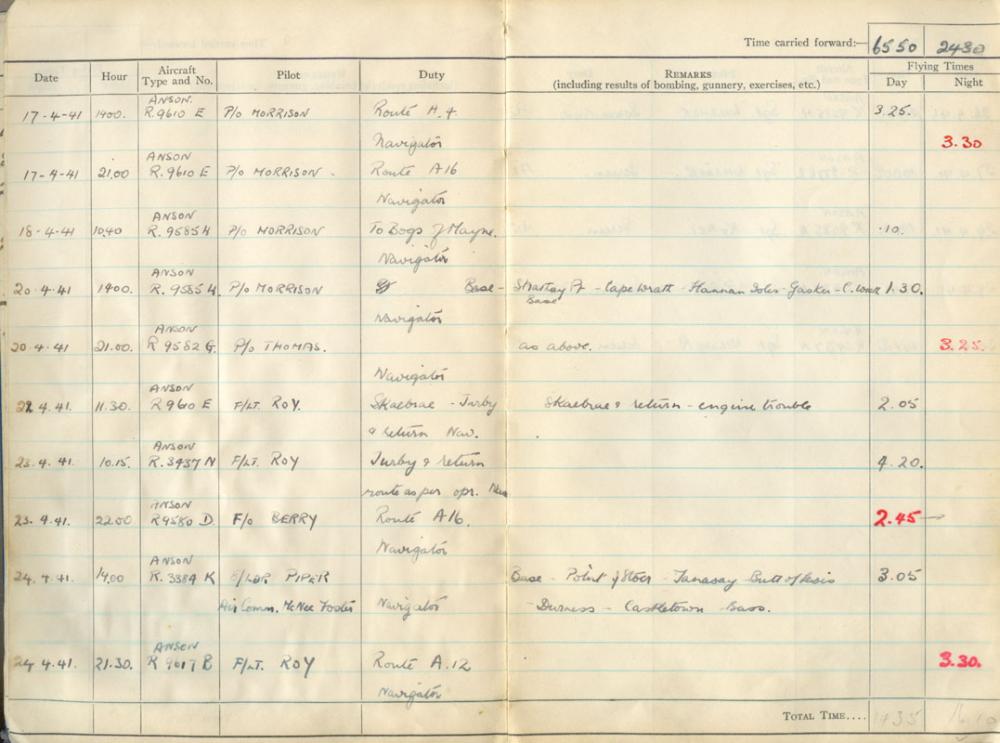 Time carried forward:— 6550 2430
Date Hour Aircraft Type and No. Pilot Duty REMARKS (including results of bombing, gunnery, exercises, etc.) Flying Times Day Night
ANSON.
17-4-41 1400. R.9610 E P/o MORRISON Route A.4 3.25.
Navigator 3.30
ANSON
17-4-41 21.00 R.9610 E P/o MORRISON Route A16
Navigator
ANSON
18-4-41 1040 R.9585 H P/o MORRISON To Bogs of Mayne. .10.
Navigator
ANSON
20.4.41 1400. R.9585 H. P/o MORRISON Base - - Cape Wratt - Hannan Isles - Gasker - 1.30.
Base
Navigator
ANSON
20.4.41 21.00. R 9582 G. P/o THOMAS. as above. 3.25.
Navigator
ANSON
22.4.41. 11.30. R 9610 E F/LT. ROY. Skaebrae - Turby Skaebrae & return - engine trouble 2.05
& return Nav.
ANSON
23.4.41. 10.15. R.3437 N F/LT. ROY Turby & return 4.20.
route as per opr. Nav
ANSON
23.4.41. 22.00 R9580 D F/o BERRY Route A16. 2.45
Navigator
ANSON
24.4.41. 14.00 R.3384 K S/LDR PIPER Base - Point of Stoer - Tanasay Butt of Lewis 3.05
Air Comm. McNee Foster Navigator - Durness - Castletown Base.
ANSON
24.4.41. 21.30. R 9617 B F/LT. ROY Route A.12 3.30.
Navigator
TOTAL TIME....